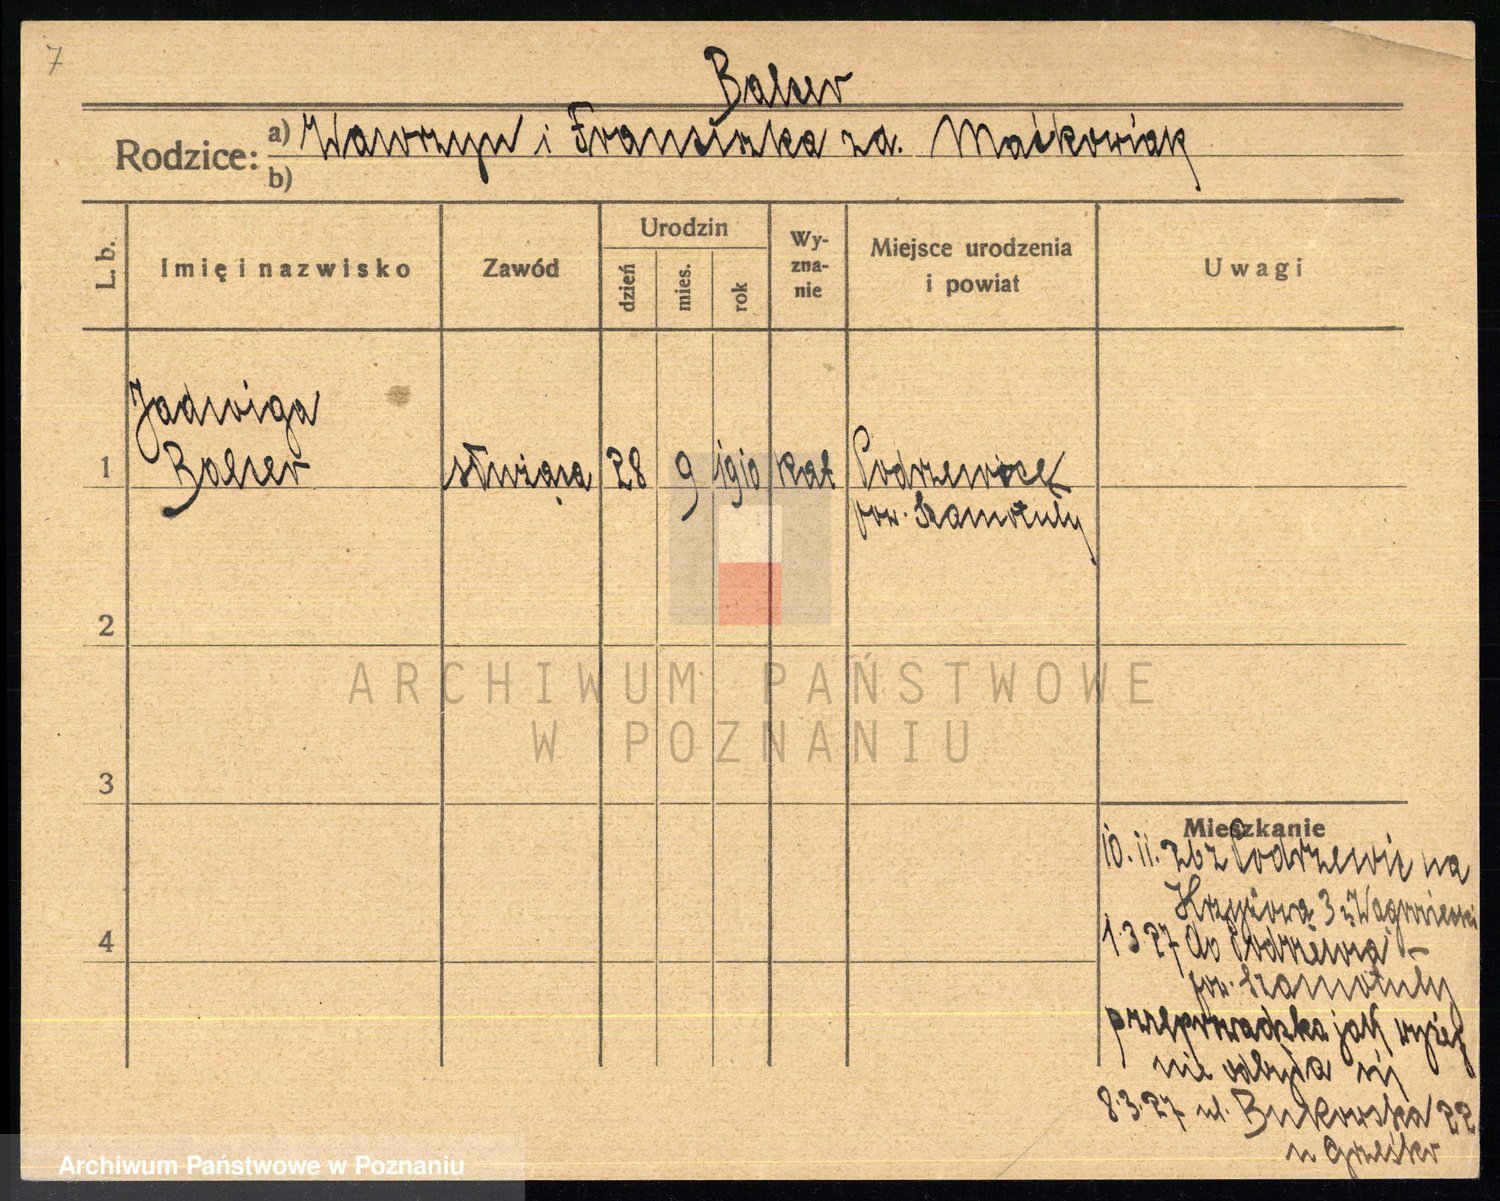 7
Balcer
Rodzice: a) Wawrzyn i Franciszka za. Maćkowiak
b)
L. b.
Imię i nazwisko
Zawód
Urodzin
dzień
mies.
rok
Wy-
zna-
nie
Miejsce urodzenia
i powiat
Uwagi
Jadwiga
1 Balcer służąca 28 9 1910 kat
pow. Szamotuły
2
ARCHIWUM PAŃSTWOWE
W POZNANIU
3
Mieszkanie
10.11.26 z na
4
1.3.27 do
pow. Szamotuły
przeprowadzka jak wyżej
nie odbyła się
8.3.27 ul. Bukowska 22
Archiwum Państwowe w Poznaniu